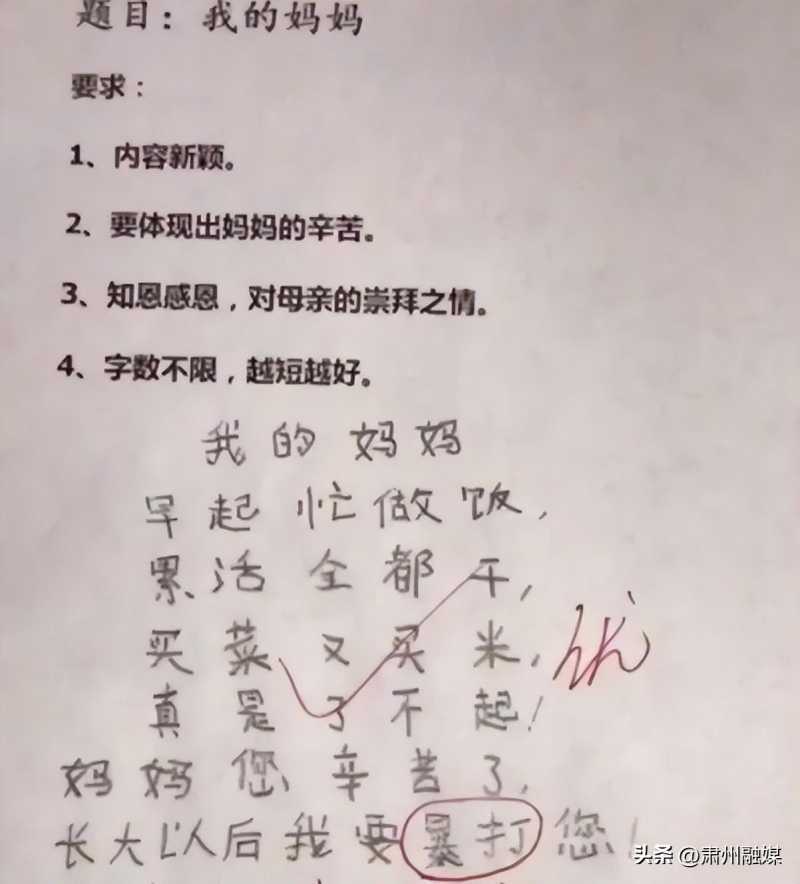 题目：我的妈妈
要求：
1、内容新颖。
2、要体现出妈妈的辛苦。
3、知恩感恩，对母亲的崇拜之情。
4、字数不限，越短越好。
我的妈妈
早起忙做饭，
累活全都干，
买菜又买米，
优
真是了不起！
妈妈您辛苦了，
长大以后我要暴打您！
头条 @肃州融媒